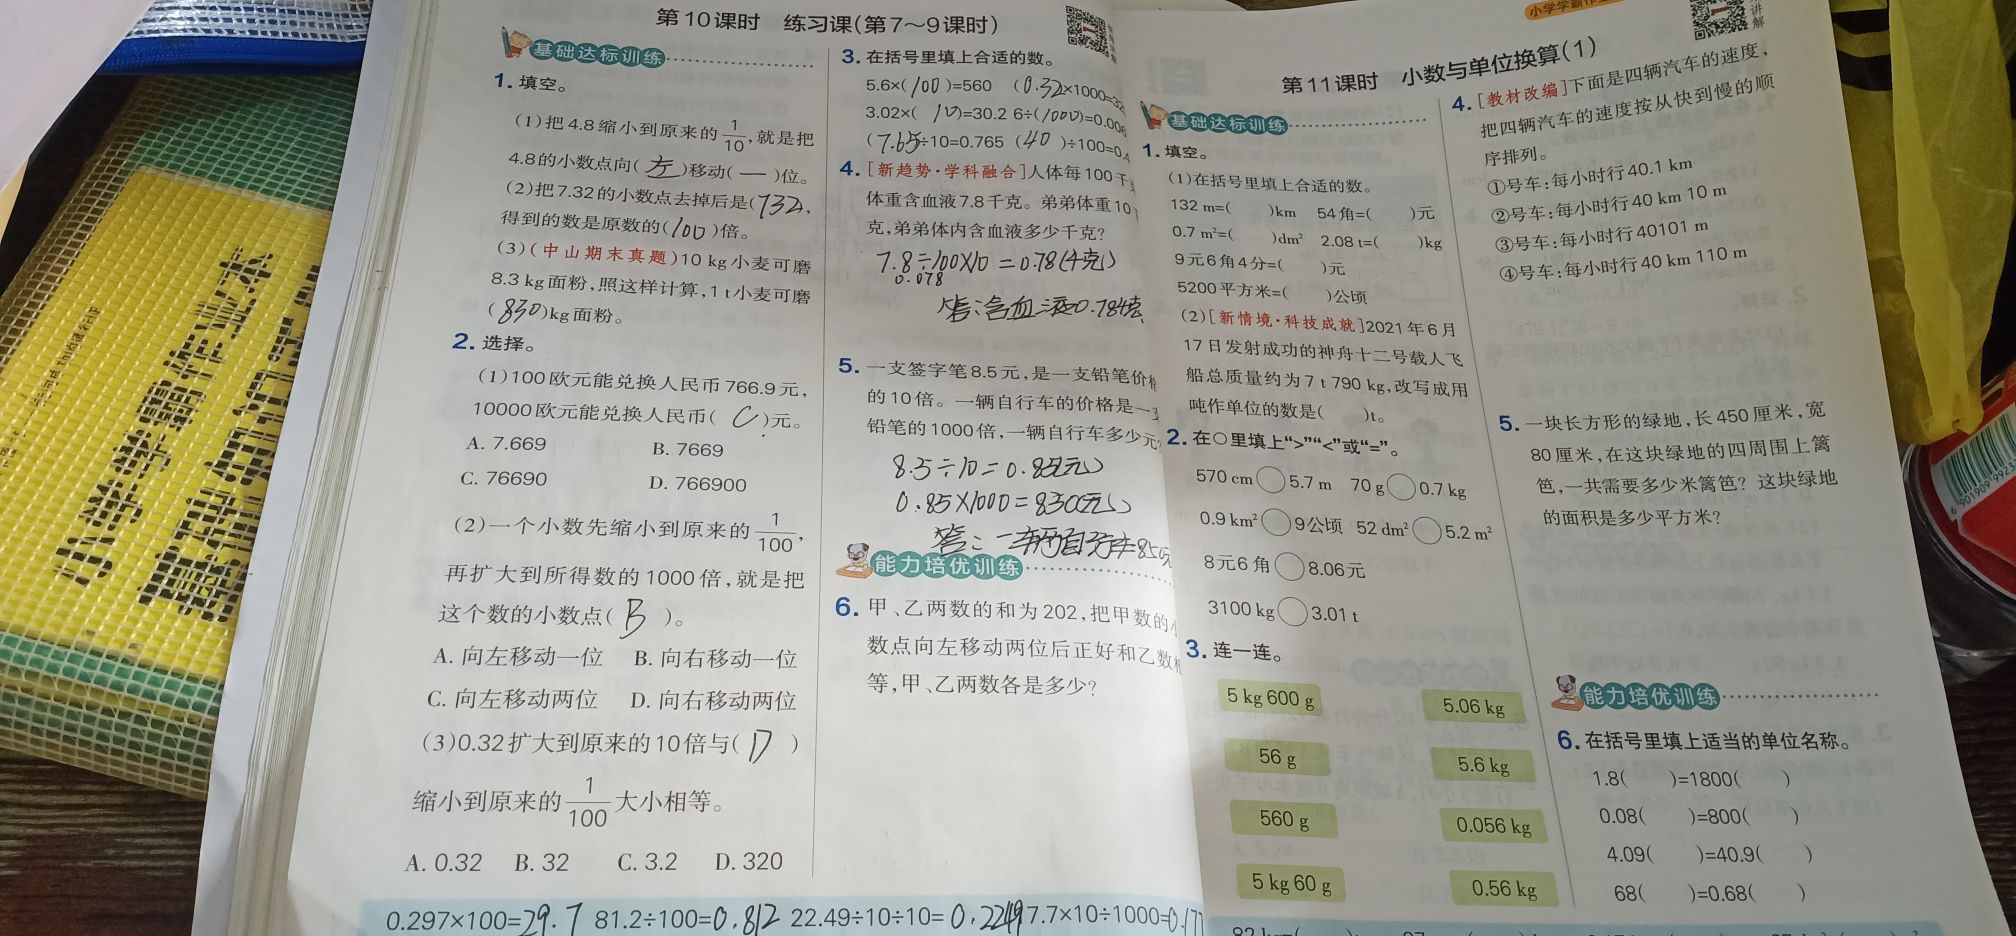 第10课时 练习课(第7～9课时)
基础达标训练
1. 填空。
(1)把4.8缩小到原来的1/10,就是把
4.8的小数点向(左)移动(一)位。
(2)把7.32的小数点去掉后是(732,
得到的数是原数的(100)倍。
(3)(中山期末真题)10 kg小麦可磨
8.3 kg面粉,照这样计算,1 t小麦可磨
(830)kg面粉。
2. 选择。
(1)100欧元能兑换人民币766.9元,
10000欧元能兑换人民币( C )元。
A. 7.669 B. 7669
C. 76690 D. 766900
(2)一个小数先缩小到原来的1/100,
再扩大到所得数的1000倍,就是把
这个数的小数点( B )。
A. 向左移动一位 B. 向右移动一位
C. 向左移动两位 D. 向右移动两位
(3)0.32扩大到原来的10倍与( D )
缩小到原来的1/100大小相等。
A. 0.32 B. 32 C. 3.2 D. 320
3. 在括号里填上合适的数。
5.6×(100)=560 (0.32×1000=32
3.02×( 10)=30.2 6÷(1000)=0.006
(7.65÷10=0.765 (40 )÷100=0.4
4. [新趋势·学科融合]人体每100千
体重含血液7.8千克。弟弟体重10
克,弟弟体内含血液多少千克?
7.8÷100×10=0.78(千克)
0.078
答:含血液0.78千克
5. 一支签字笔8.5元,是一支铅笔价格
的10倍。一辆自行车的价格是一支
铅笔的1000倍,一辆自行车多少元
8.5÷10=0.85(元)
0.85×1000=850(元)
答:一辆自行车850元
能力培优训练
6. 甲、乙两数的和为202,把甲数的小
数点向左移动两位后正好和乙数相
等,甲、乙两数各是多少?
0.297×100=29.7 81.2÷100=0.812 22.49÷10÷10=0.2249 7.7×10÷1000=0.077
小学学霸作业
讲解
第11课时 小数与单位换算(1)
基础达标训练
1. 填空。
(1)在括号里填上合适的数。
132 m=( )km 54角=( )元
0.7 m²=( )dm² 2.08 t=( )kg
9元6角4分=( )元
5200平方米=( )公顷
(2)[新情境·科技成就]2021年6月
17日发射成功的神舟十二号载人飞
船总质量约为7 t 790 kg,改写成用
吨作单位的数是( )t。
2. 在○里填上“>”“<”或“=”。
570 cm○5.7 m 70 g○0.7 kg
0.9 km²○9公顷 52 dm²○5.2 m²
8元6角○8.06元
3100 kg○3.01 t
3. 连一连。
5 kg 600 g 5.06 kg
56 g 5.6 kg
560 g 0.056 kg
5 kg 60 g 0.56 kg
4. [教材改编]下面是四辆汽车的速度,
把四辆汽车的速度按从快到慢的顺
序排列。
①号车:每小时行40.1 km
②号车:每小时行40 km 10 m
③号车:每小时行40101 m
④号车:每小时行40 km 110 m
5. 一块长方形的绿地,长450厘米,宽
80厘米,在这块绿地的四周围上篱
笆,一共需要多少米篱笆?这块绿地
的面积是多少平方米?
能力培优训练
6. 在括号里填上适当的单位名称。
1.8( )=1800( )
0.08( )=800( )
4.09( )=40.9( )
68( )=0.68( )
小学学霸作业本